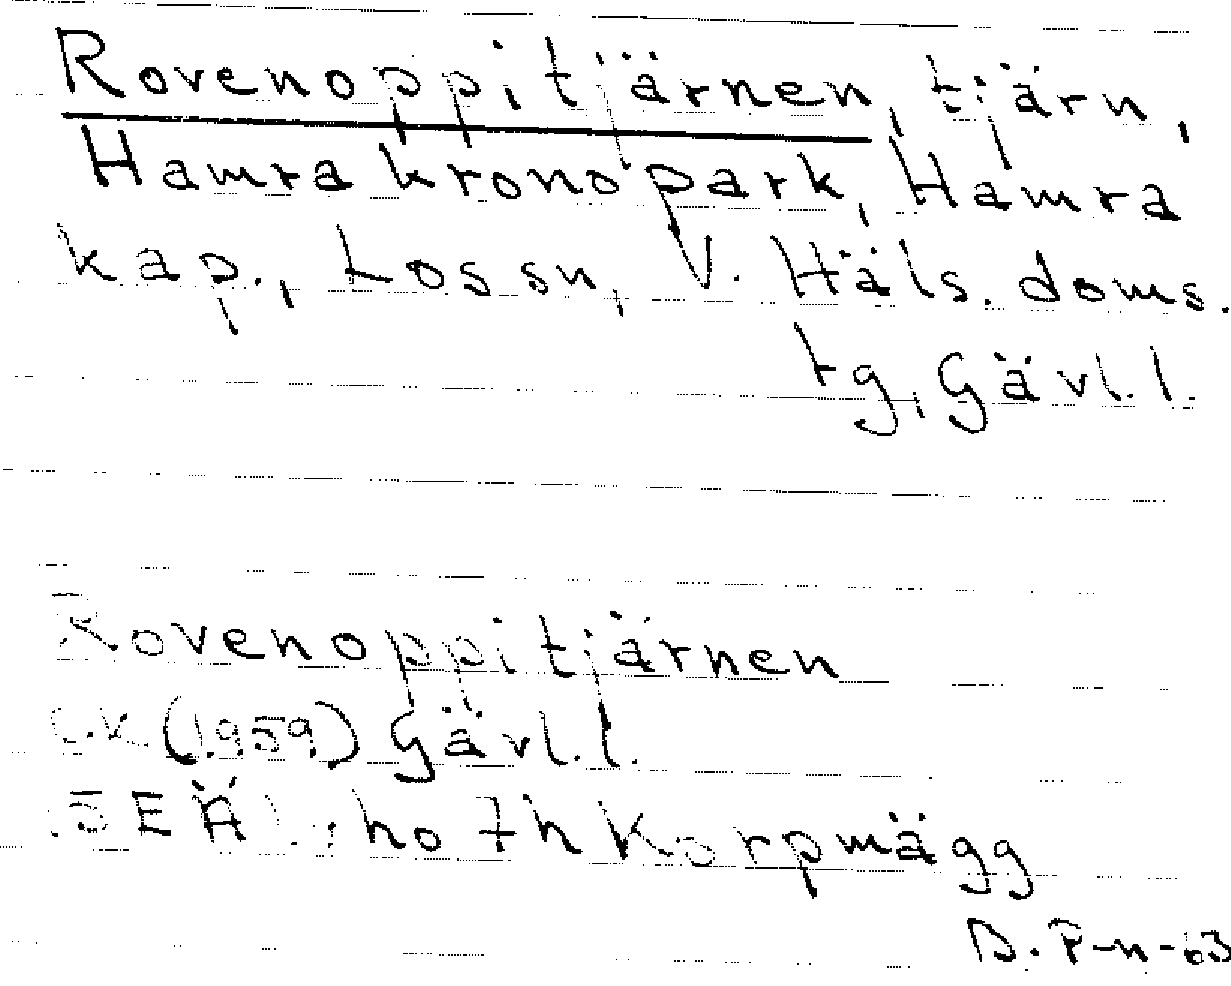 Rovenoppitjärnen, tjärn,
Hamra kronopark, Hamra
kap., Lossn, V. Häls. doms.
tg, Gävl. l.
Rovenoppitjärnen
(1959) Gävl. l.
5 E Ä ho Korpmägg
D. P-n-63